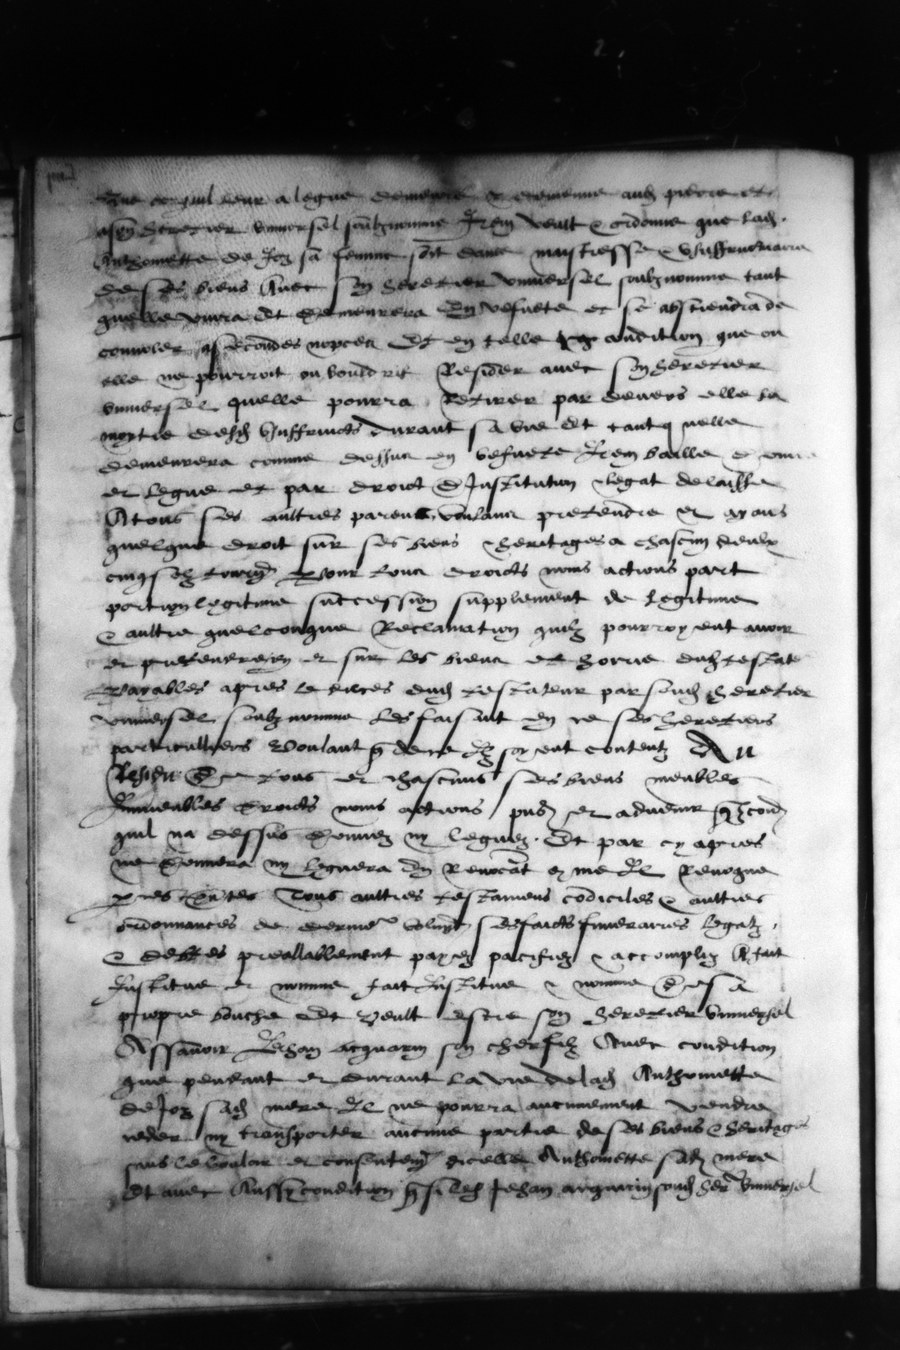 que ce quil leur a legue demeure & advienne aud pierre et
a son heretier universel soubznomme Item veult & ordonne que lad
Anthoinette de Joz sa femme soit dame maistresse & usuffructuaire
de ses biens Avec son heretier universel soubznomme tant
quelle vivra Et demeurera En vefvete et se abstiendra de
convoler a secondes nopces Et en telle condition que ou
elle ne pourroit ou vouldrit Resider avec son heretier
universel quelle pourra Retirer par devers elle la
moytie desd Usuffruicts durant sa vie Et tant quelle
demeurera comme dessus en vefvete Item baille & donne
et legue et par droict d Institution & legat delaisse
A tous ses aultres parens voulans pretendre et ayans
quelque droit sur ses biens & heritages a chascun deulx
cinq solz tourn pour tous droicts noms actions part
portion legitime succession supplement de legitime
& aultre quelconque Reclamation quilz pourroyent avoir
et pretendre en et sur les biens et hoirie dud testate
Payables apres le deces dud testateur par sond heretier
universel soubznomme Les faisant en ce ses heretiers
particulliers Voulant q de ce ilz soyent contentz Au
Residu De tous et chascuns ses biens meubles
Immeubles droicts noms actions pns et advenir
quil na dessus donnez ny leguez Et par cy apres
ne donnera ny leguera En Revocant & me Et Revoque
Tous aultres testamens codiciles & aultres
ordonnances de derniere volunte ses faicts funeraires legatz
& debtes preallablement payez pacifiez & accomplis A fait
Institue et nomme fait Institue & nomme De sa
propre bouche Et Veult estre son heretier Universel
Assavoir Jehan acquarin son cher filz Avec condition
que pendant et durant la vie de lad Anthoinette
de Joz sad mere Il ne pourra aucunement vendre
ceder ny transporter aucune partie de ses biens & heritages
sans le voloir et consentement dicelle Anthoinette sad mere
Et avec Aussy condition q si led Jehan acquarin sond her Universel